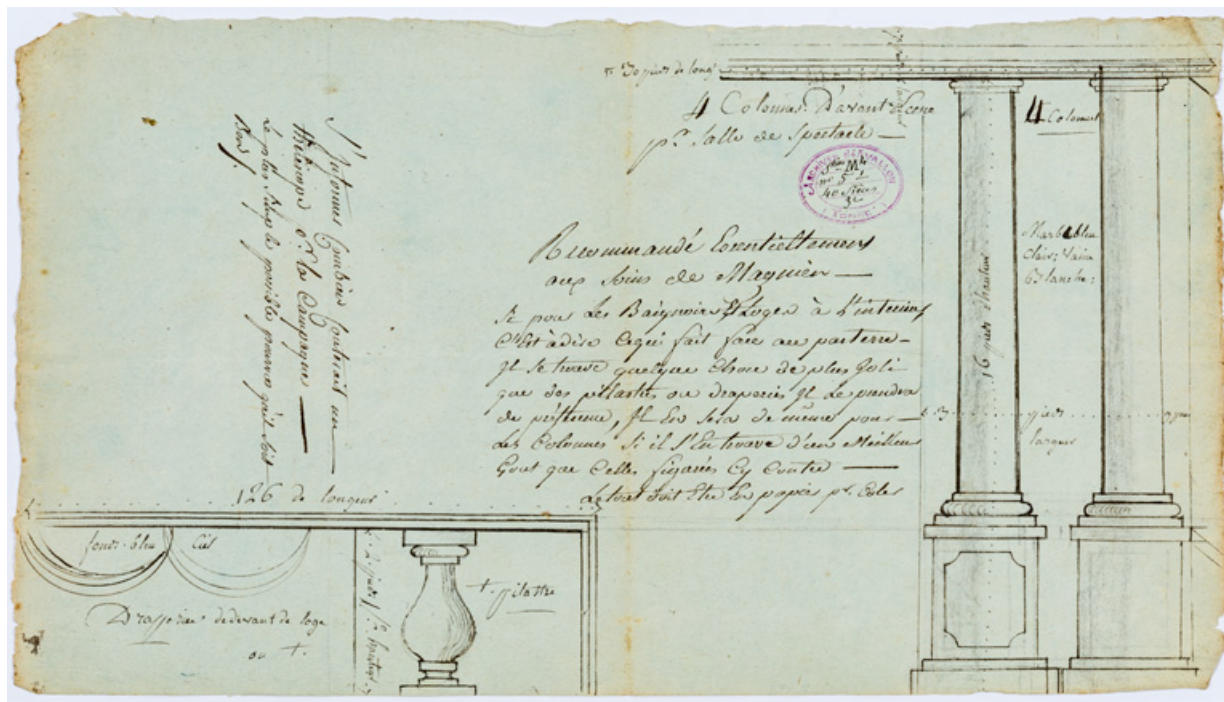 30 pieds de long
4 Colonnes D'avant Scene
pr. Salle de Spectacle
4 Colonnes
Recommandé Essentiellement
aux soins de Magnien
Si pour Les Baignoires & Loges à L'interieur
C'est à dire Ce qui fait face au parterre
Il se trouve quelque Chose de plus Joli
que des pilastres ou draperies Il Le prendra
de préférence, Il En sera de même pour
Les Colonnes Si il S'En trouve d'un Meilleur
Gout que Celles figurées Cy Contre
Le tout doit Etre En papier pr. Coler
Marbre bleu
Clair; Vaine
Blanche;
16 pieds d'hauteur
3 pieds
largeur
S'Informer Combien Couterait un
de la Campagne
Le plus possible pourvu qu'il soit
Bon
126 de longeur
fond-bleu Ciel
Drapperies de devant de loge
ou +.
+. pilastre
2. pieds
ARCHIVES D'AVALLON
(YONNE)